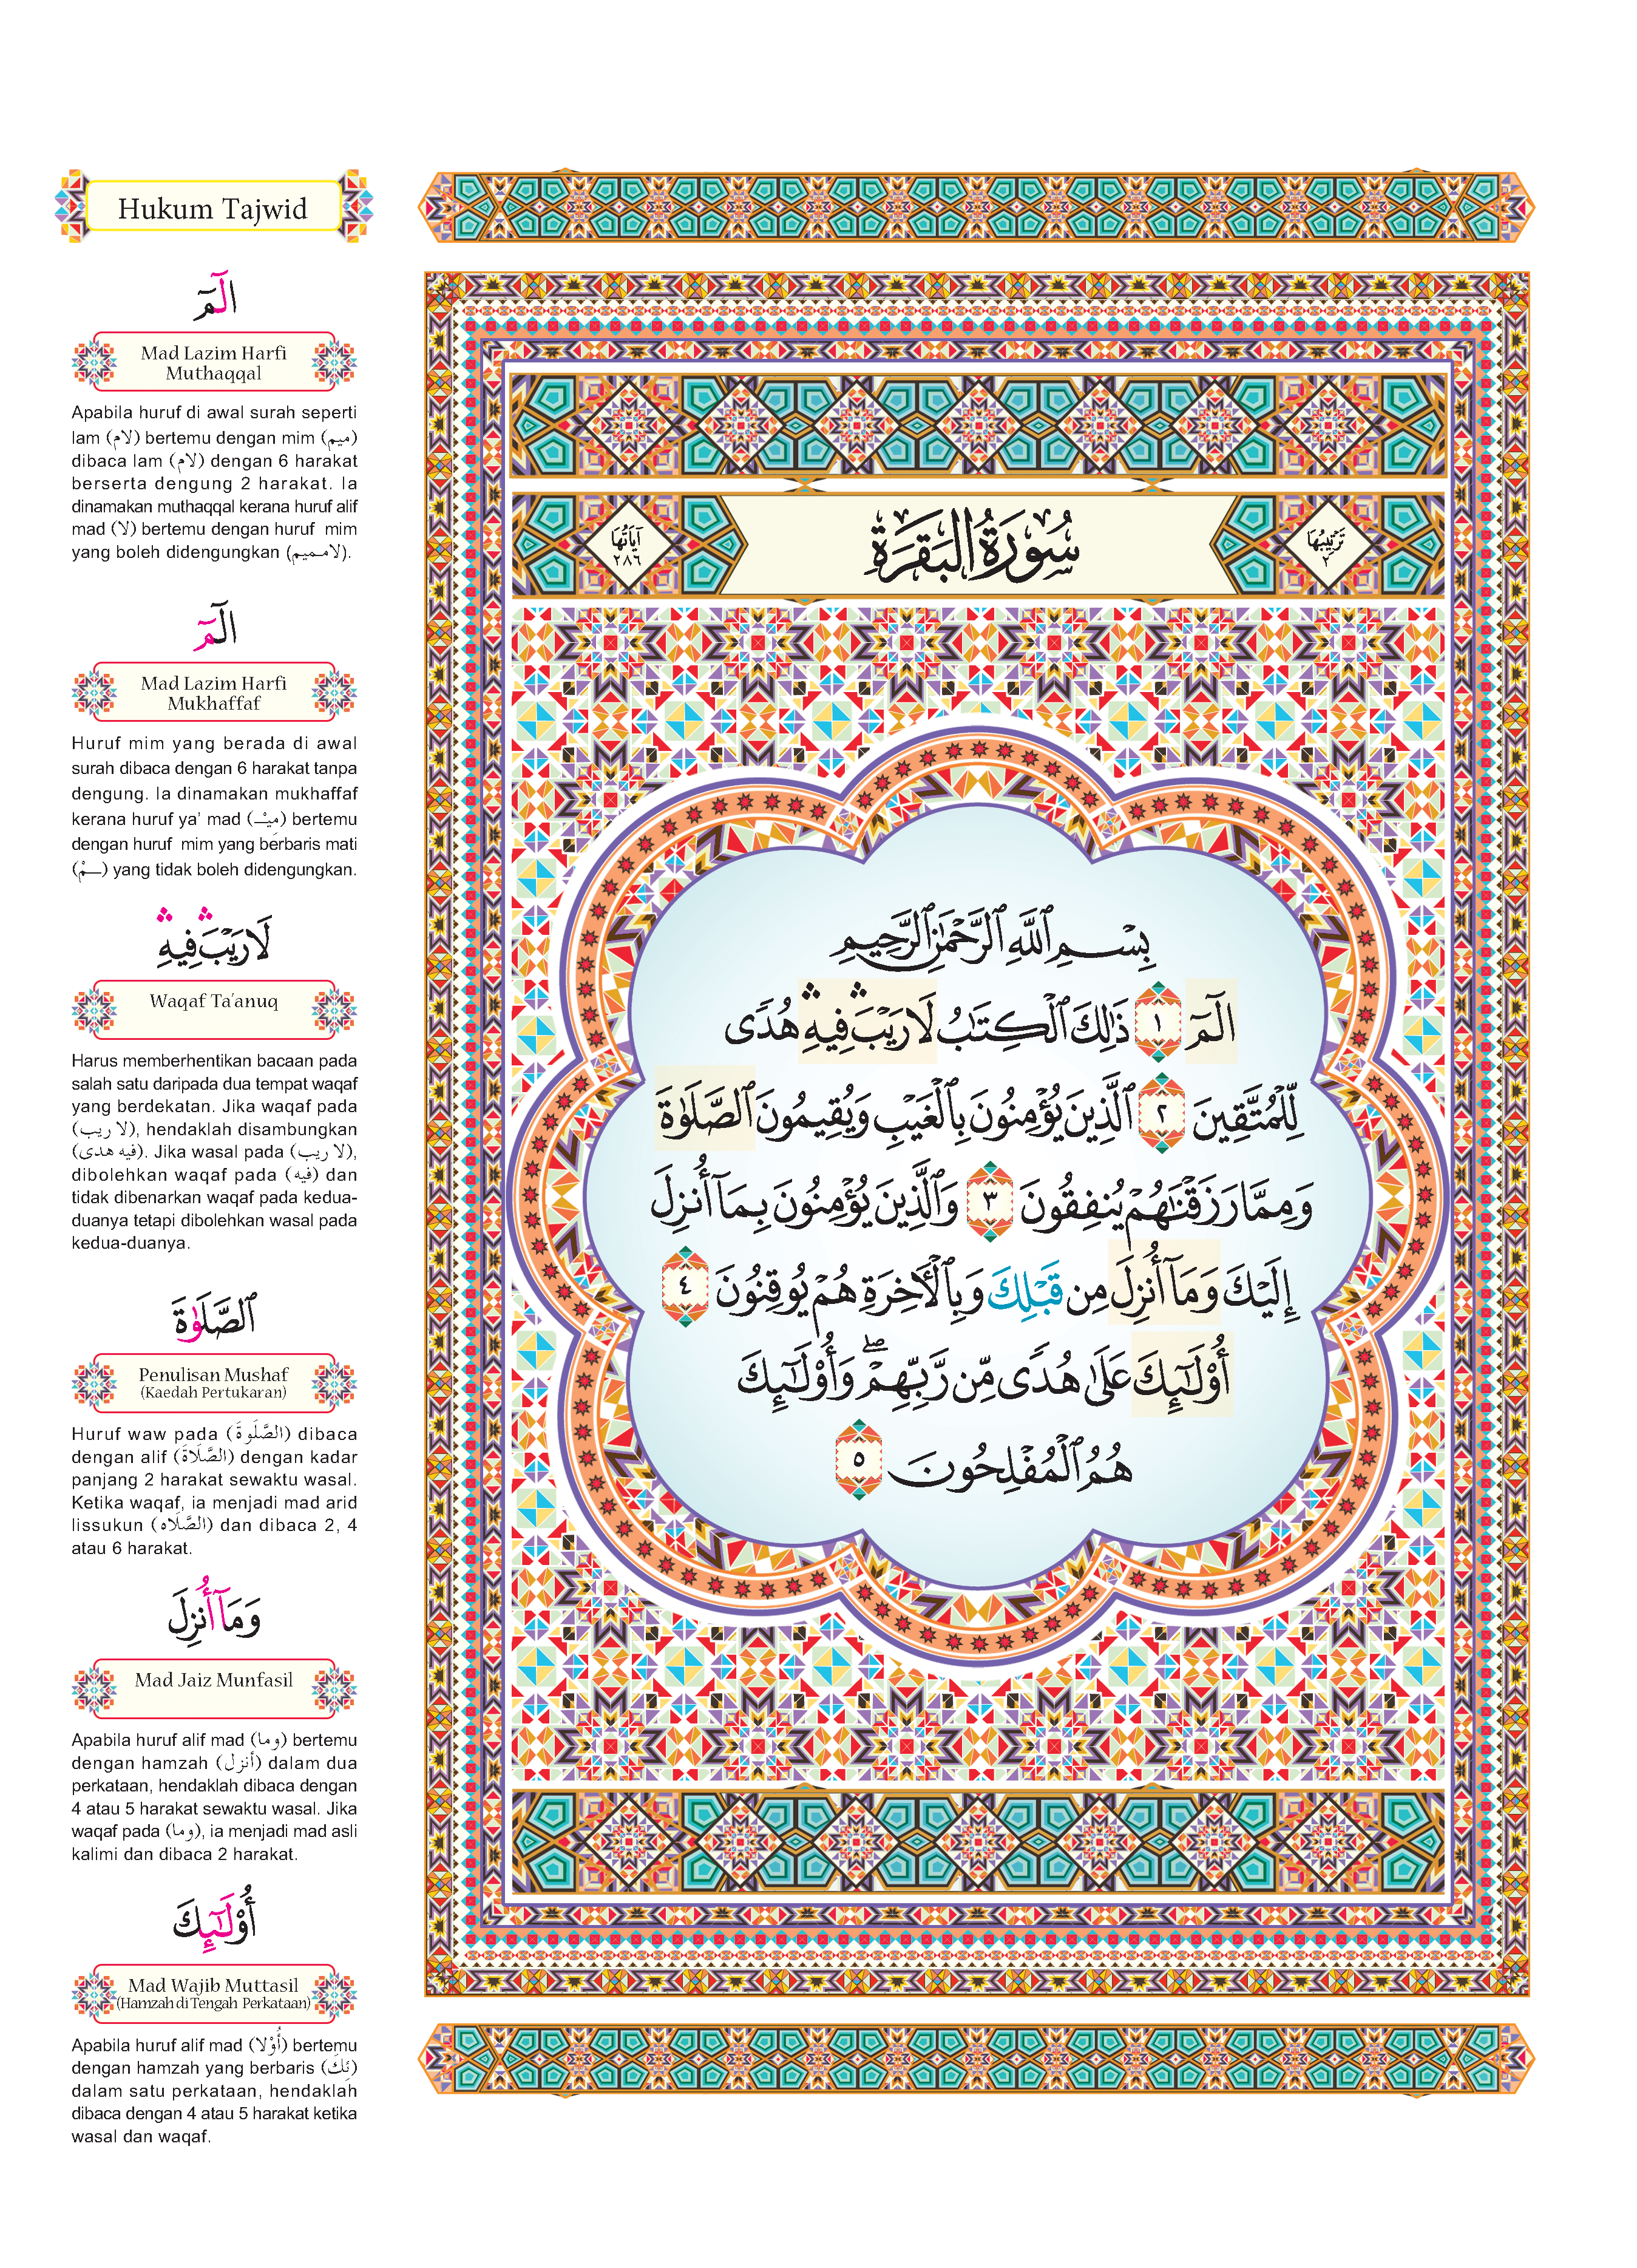 Hukum Tajwid
الٓمٓ
Mad Lazim Harfi
Muthaqqal
Apabila huruf di awal surah seperti
lam (لام) bertemu dengan mim (ميم)
dibaca lam (لام) dengan 6 harakat
berserta dengung 2 harakat. Ia
dinamakan muthaqqal kerana huruf alif
mad (لا) bertemu dengan huruf mim
yang boleh didengungkan (لامـميم).
الٓمٓ
Mad Lazim Harfi
Mukhaffaf
Huruf mim yang berada di awal
surah dibaca dengan 6 harakat tanpa
dengung. Ia dinamakan mukhaffaf
kerana huruf ya' mad (مِيْـ) bertemu
dengan huruf mim yang berbaris mati
(ـمْ) yang tidak boleh didengungkan.
لَا رَيْبَ ۛ فِيهِ ۛ
Waqaf Ta'anuq
Harus memberhentikan bacaan pada
salah satu daripada dua tempat waqaf
yang berdekatan. Jika waqaf pada
(لا ريب), hendaklah disambungkan
(فيه هدى). Jika wasal pada (لا ريب),
dibolehkan waqaf pada (فيه) dan
tidak dibenarkan waqaf pada kedua-
duanya tetapi dibolehkan wasal pada
kedua-duanya.
ٱلصَّلَوٰةَ
Penulisan Mushaf
(Kaedah Pertukaran)
Huruf waw pada (الصَّلَوةَ) dibaca
dengan alif (الصَّلَاةَ) dengan kadar
panjang 2 harakat sewaktu wasal.
Ketika waqaf, ia menjadi mad arid
lissukun (الصَّلَاه) dan dibaca 2, 4
atau 6 harakat.
وَمَآ أُنزِلَ
Mad Jaiz Munfasil
Apabila huruf alif mad (وما) bertemu
dengan hamzah (أنزل) dalam dua
perkataan, hendaklah dibaca dengan
4 atau 5 harakat sewaktu wasal. Jika
waqaf pada (وما), ia menjadi mad asli
kalimi dan dibaca 2 harakat.
أُوْلَـٰٓئِكَ
Mad Wajib Muttasil
(Hamzah di Tengah Perkataan)
Apabila huruf alif mad (أُوْلا) bertemu
dengan hamzah yang berbaris (ئِكَ)
dalam satu perkataan, hendaklah
dibaca dengan 4 atau 5 harakat ketika
wasal dan waqaf.
تَرْتِيبُهَا ٢
سُورَةُ الْبَقَرَةِ
آيَاتُهَا ٢٨٦
بِسْمِ ٱللَّهِ ٱلرَّحْمَـٰنِ ٱلرَّحِيمِ
الٓمٓ ١ ذَٰلِكَ ٱلْكِتَـٰبُ لَا رَيْبَ ۛ فِيهِ ۛ هُدًى
لِّلْمُتَّقِينَ ٢ ٱلَّذِينَ يُؤْمِنُونَ بِٱلْغَيْبِ وَيُقِيمُونَ ٱلصَّلَوٰةَ
وَمِمَّا رَزَقْنَـٰهُمْ يُنفِقُونَ ٣ وَٱلَّذِينَ يُؤْمِنُونَ بِمَآ أُنزِلَ
إِلَيْكَ وَمَآ أُنزِلَ مِن قَبْلِكَ وَبِٱلْأَخِرَةِ هُمْ يُوقِنُونَ ٤
أُوْلَـٰٓئِكَ عَلَىٰ هُدًى مِّن رَّبِّهِمْ ۖ وَأُوْلَـٰٓئِكَ
هُمُ ٱلْمُفْلِحُونَ ٥